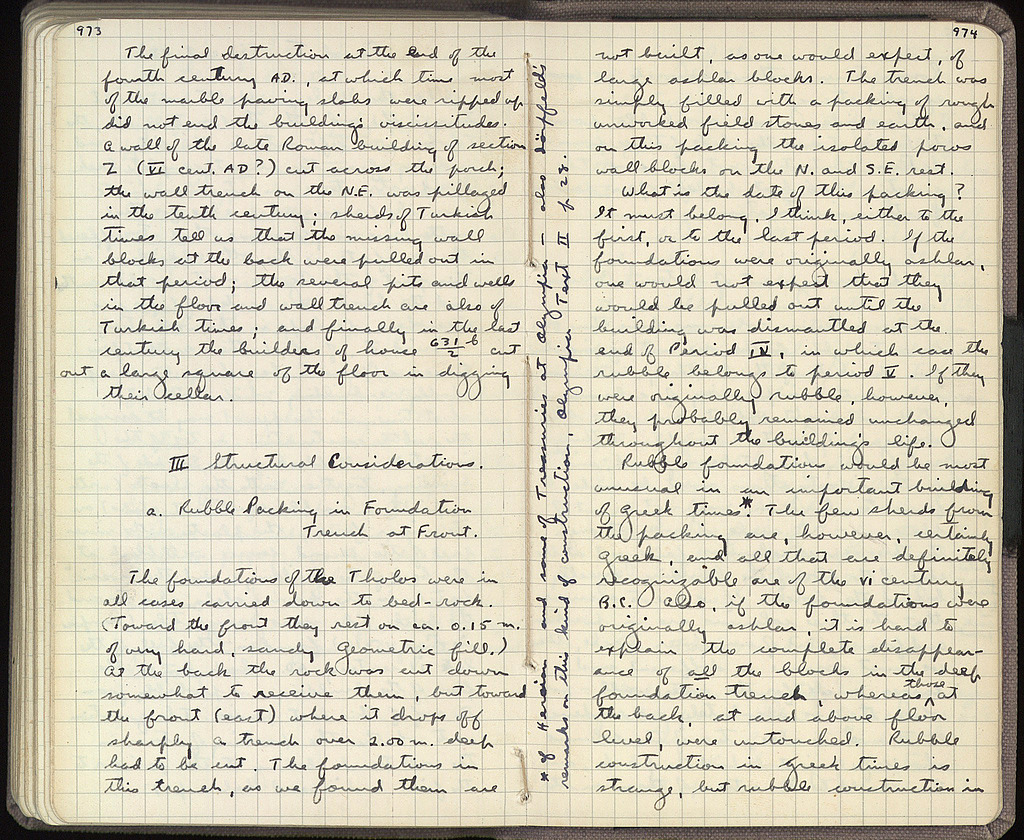 973
The final destruction at the end of the
fourth century AD., at which time most
of the marble paving slabs were ripped up
did not end the building's viscissitudes.
A wall of the late Roman building of section
Z (VI cent. AD?) cut across the porch;
the wall trench on the N.E. was pillaged
in the tenth century; sherds of Turkish
times tell us that the missing wall
blocks at the back were pulled out in
that period; the several pits and wells
in the floor and wall trench are also of
Turkish times; and finally in the last
century the builders of house 631/2-6 cut
out a large square of the floor in digging
their cellar.
III Structural Considerations.
a. Rubble Packing in Foundation
Trench at Front.
The foundations of the Tholos were in
all cases carried down to bed-rock.
(Toward the front they rest on ca. 0.15 m.
of very hard, sandy Geometric fill.)
At the back the rock was cut down
somewhat to receive them, but toward
the front (east) where it drops off
sharply a trench over 2.00 m. deep
had to be cut. The foundations in
this trench, as we found them are
* cf Heraion and some of Treasuries at Olympia – also Dörpfeld's
remarks on this kind of construction, Olympia Text II p 28.
974
not built, as one would expect, of
large ashlar blocks. The trench was
simply filled with a packing of rough
unworked field stones and earth, and
on this packing the isolated poros
wall blocks on the N. and S.E. rest.
What is the date of this packing?
It must belong, I think, either to the
first, or to the last period. If the
foundations were originally ashlar,
one would not expect that they
would be pulled out until the
building was dismantled at the
end of Period IV, in which case the
rubble belongs to period V. If they
were originally rubble, however,
they probably remained unchanged
throughout the building's life.
Rubble foundations would be most
unusual in an important building
of Greek times*. The few sherds from
the packing are, however, certainly
Greek, and all that are definitely
recognizable are of the VI century
B.C. Also, if the foundations were
originally ashlar, it is hard to
explain the complete disappear-
ance of all the blocks in the deep
foundation trench, whereas those at
the back, at and above floor
level, were untouched. Rubble
construction in Greek times is
strange, but rubble construction in